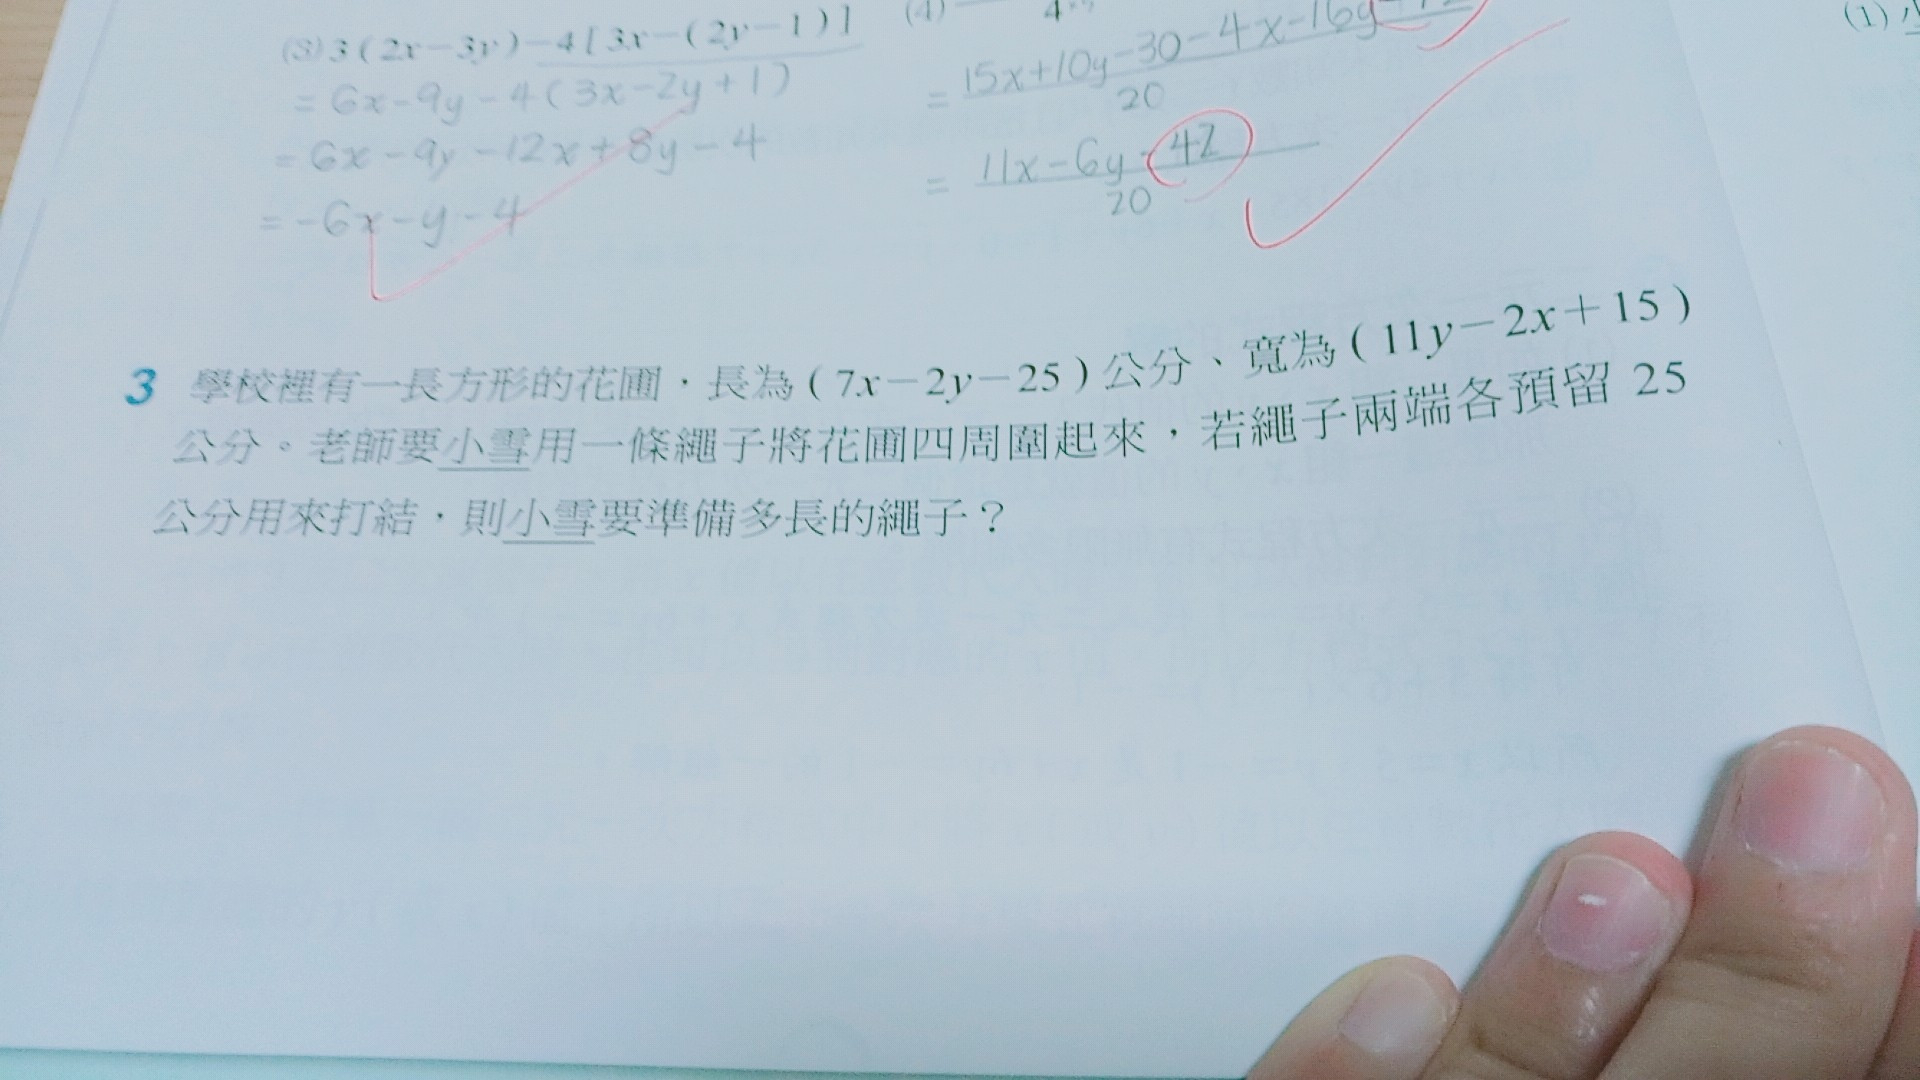 (3) 3(2x-3y)-4[3x-(2y-1)]
=6x-9y-4(3x-2y+1)
=6x-9y-12x+8y-4
=-6x-y-4
(4)
=15x+10y-30-4x-16y
20
=11x-6y-42
20
3 學校裡有一長方形的花圃，長為(7x-2y-25)公分、寬為(11y-2x+15)
公分。老師要小雪用一條繩子將花圃四周圍起來，若繩子兩端各預留 25
公分用來打結，則小雪要準備多長的繩子？
(1)